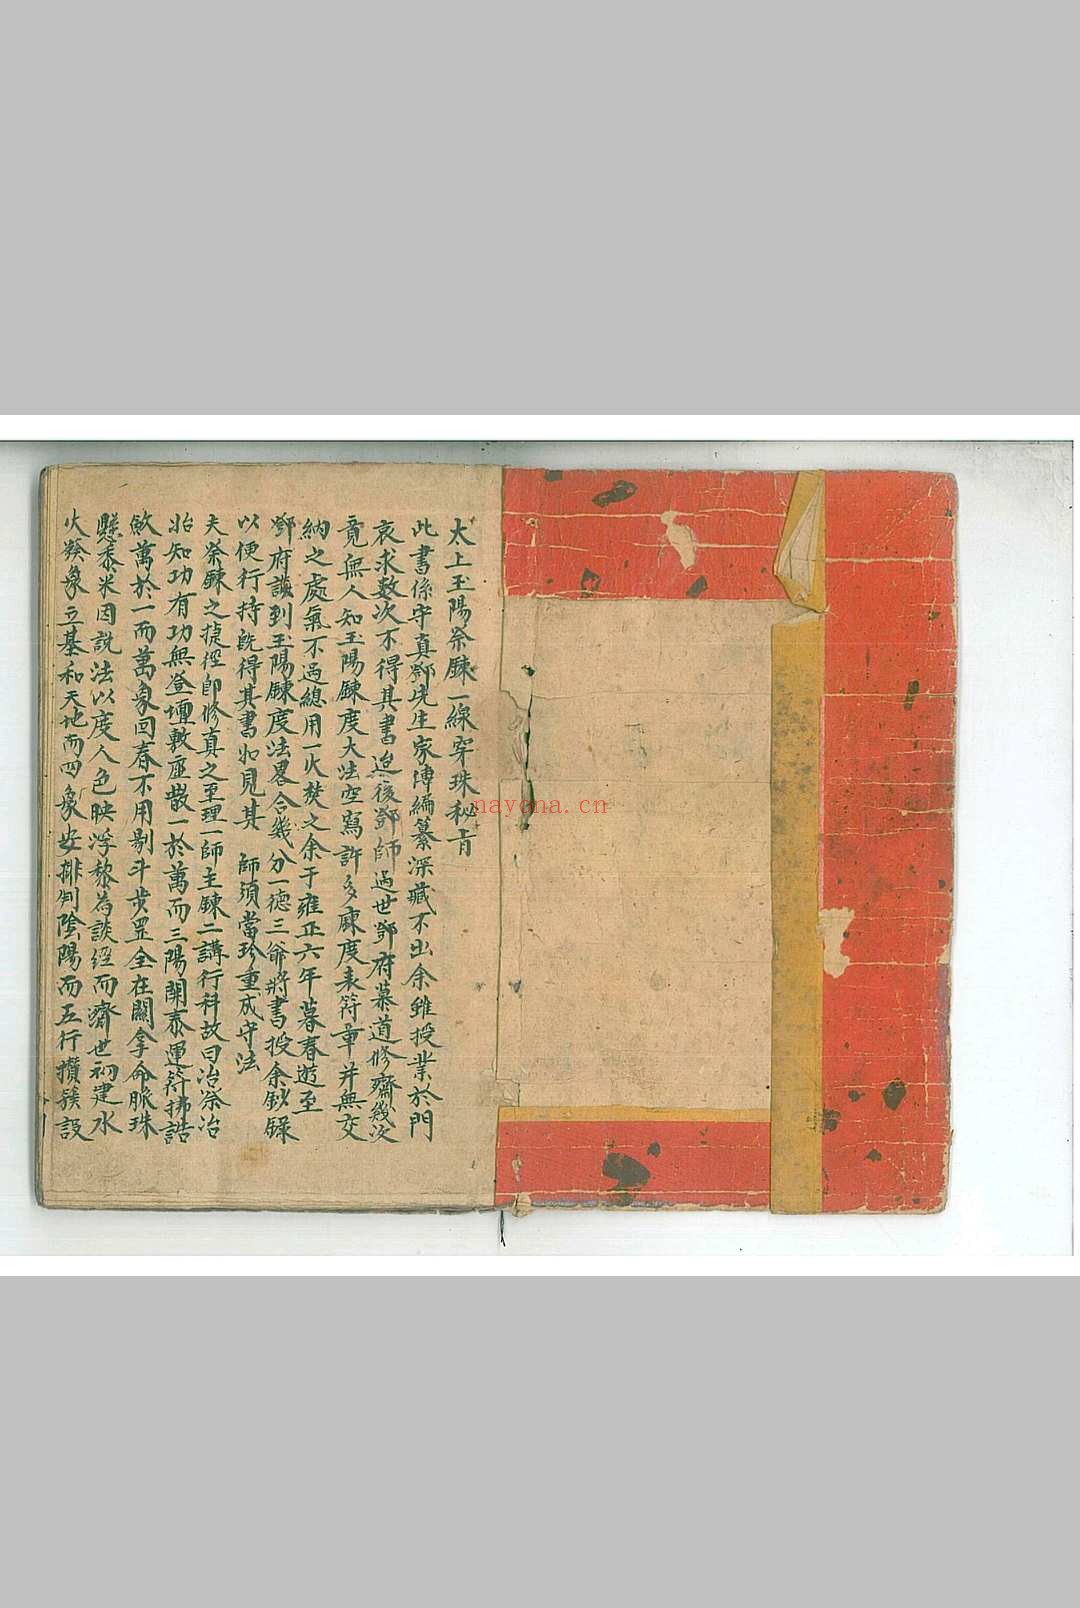 太上玉陽祭鍊一線穿珠秘旨
此書係守真鄧先生家傳編纂深藏不出余雖授業於門
哀求数次不得其書迨後鄧師過世鄧府慕道修齋幾次
竟無人知玉陽鍊度大法空寫許多鍊度表符章并無交
納之處氣不過總用一火焚之余于雍正六年暮春遊至
鄧府談到玉陽鍊度法畧合幾分一德三爺將書授余鈔錄
以便行持既得其書如見其 師須當珍重成守法
夫祭鍊之捷徑即修真之至理一師主鍊二講行科故曰冶祭冶
知功有功無登壇敷座散一於萬而三陽開泰運符掃誥
斂萬於一而萬象回春不用剔斗步罡全在關拿命脈珠
懸黍米因說法以度人色映浮黎為談經而濟世初建水
火發象立基和天地而四象安排判陰陽而五行攢簇設
nayona.cn